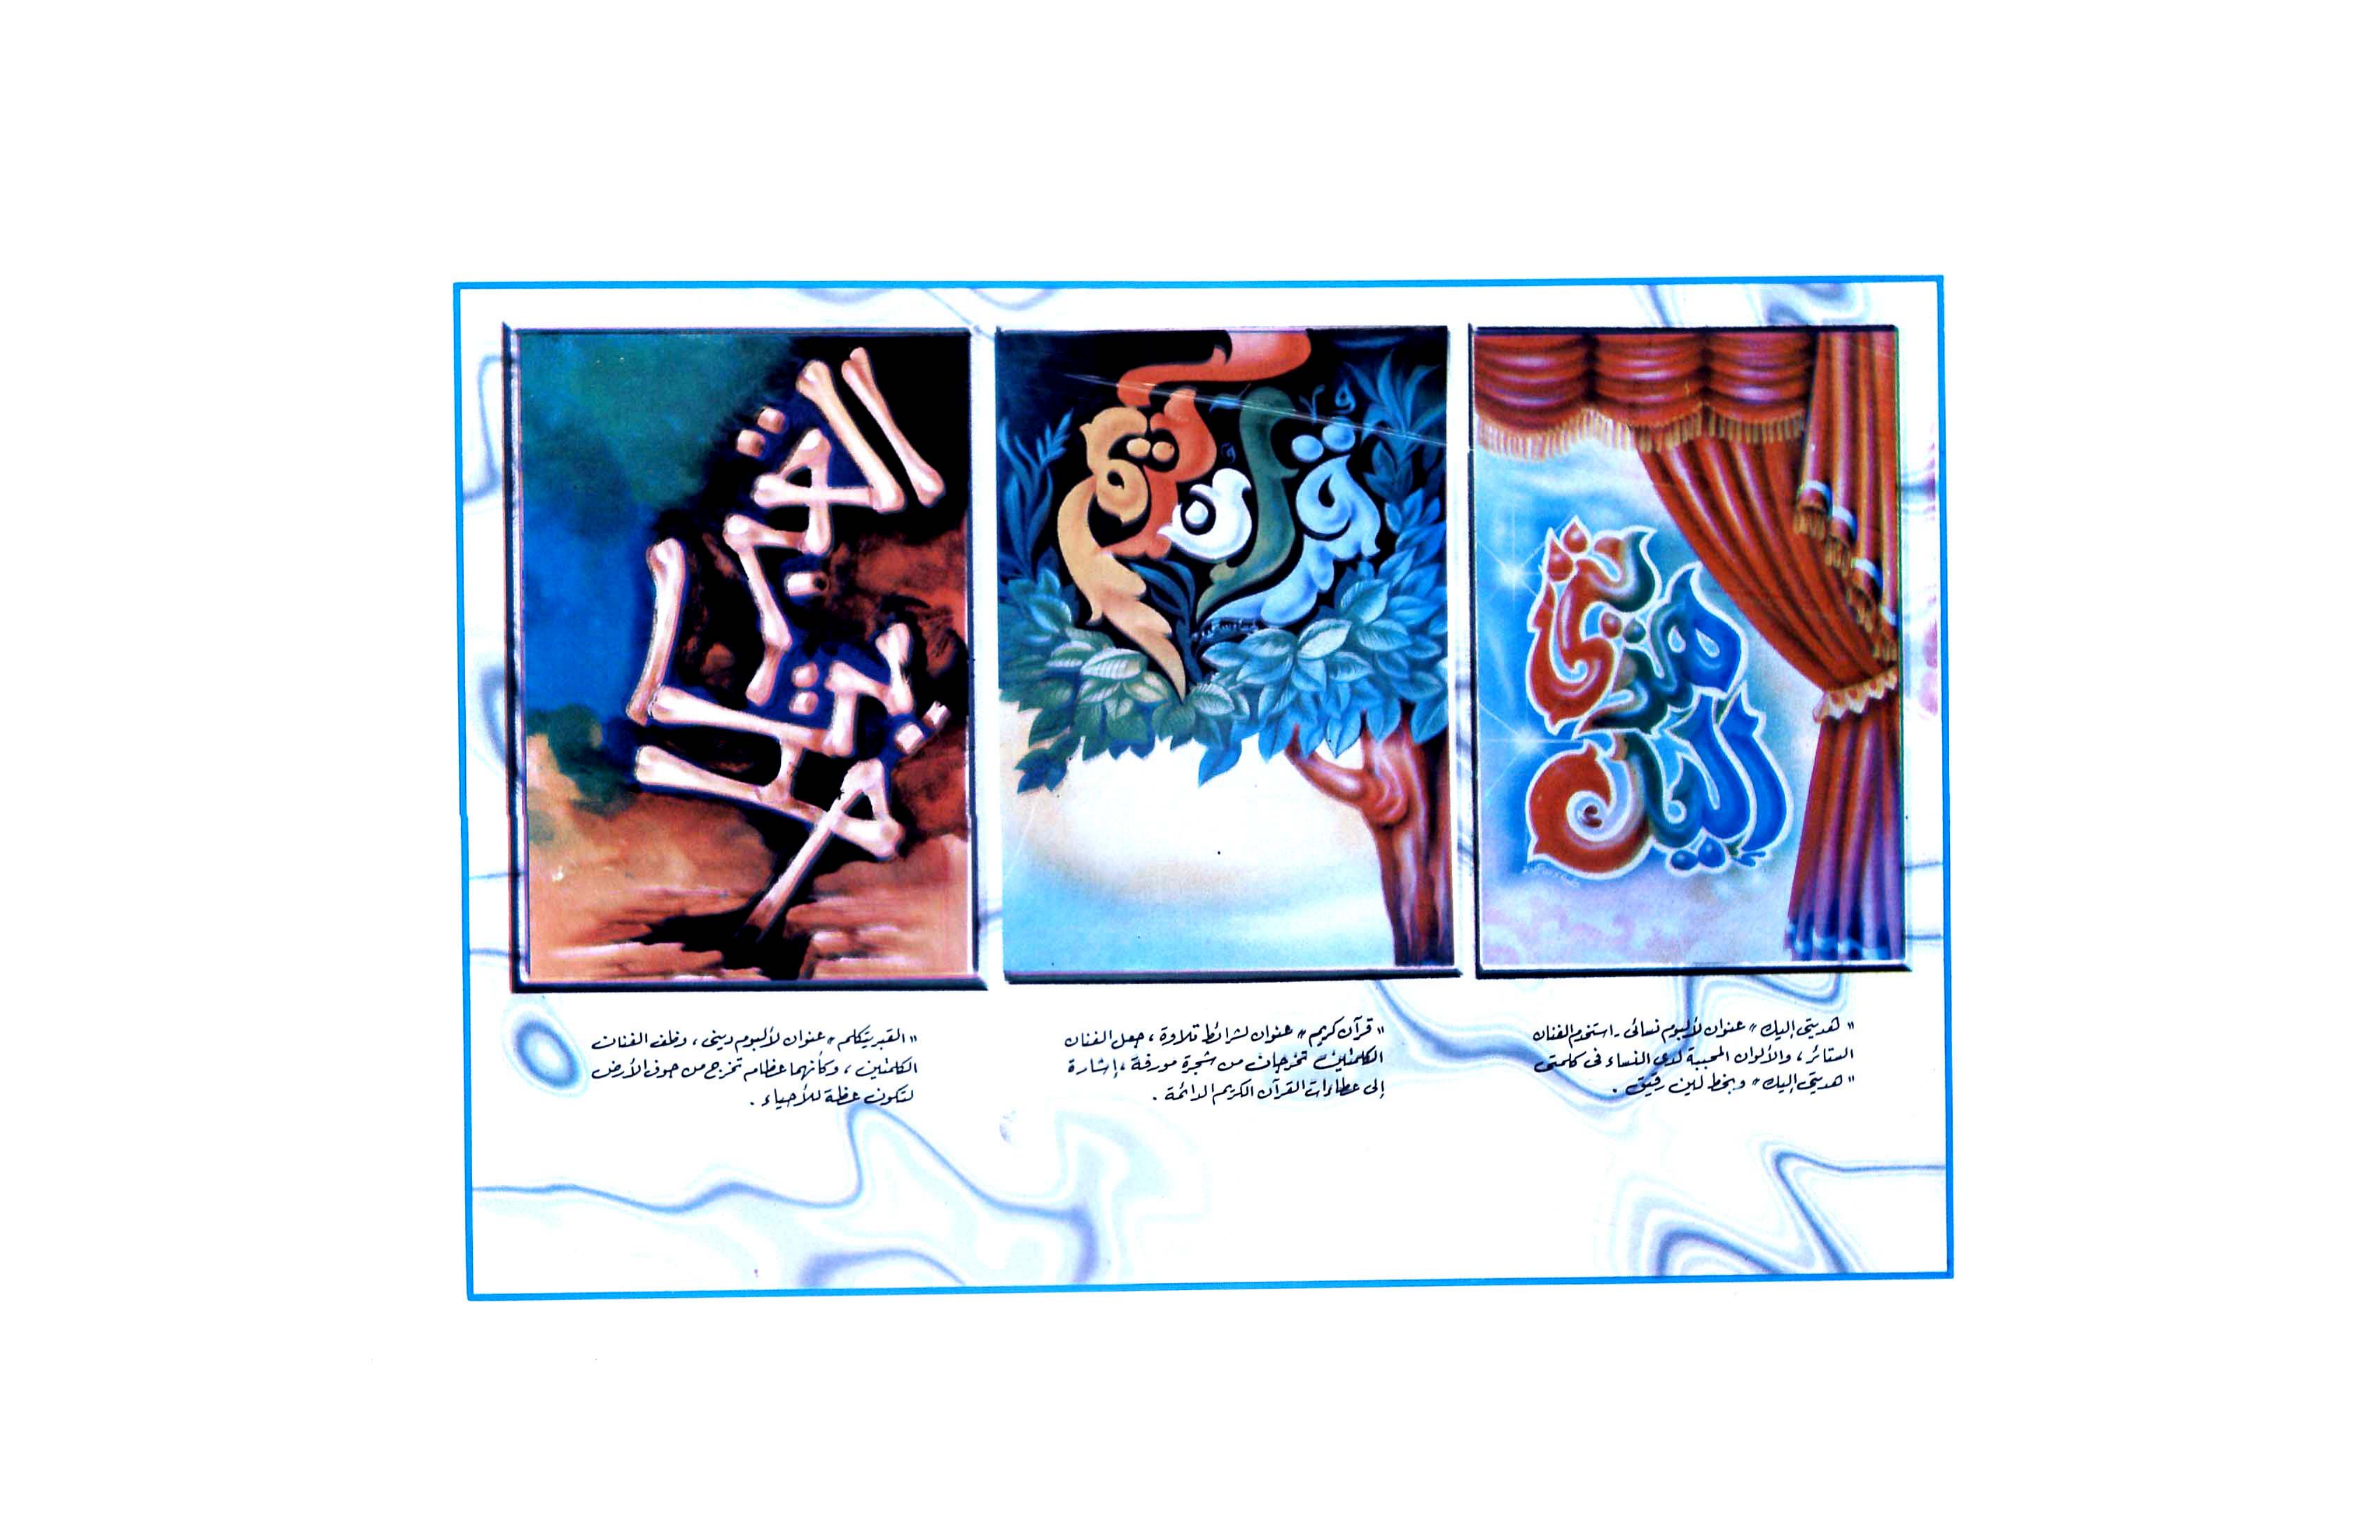 هديتي
إليك
قرآن
كريم
القبر
يتكلم
"هديتي إليك" عنوان لألبوم نسائى - استخدم الفنان
الستائر، والألوان المحببة لدى النساء فى كلمتى
"هديتي إليك" وبخط لين رقيق.
"قرآن كريم" عنوان لشرائط تلاوة، جعل الفنان
الكلمتين تخرجان من شجرة مورقة، إشارة
إلى عطاءات القرآن الكريم الدائمة.
"القبر يتكلم" عنوان لألبوم دينى، وظف الفنان
الكلمتين، وكأنهما عظام تخرج من جوف الأرض
لتكون عظة للأحياء.